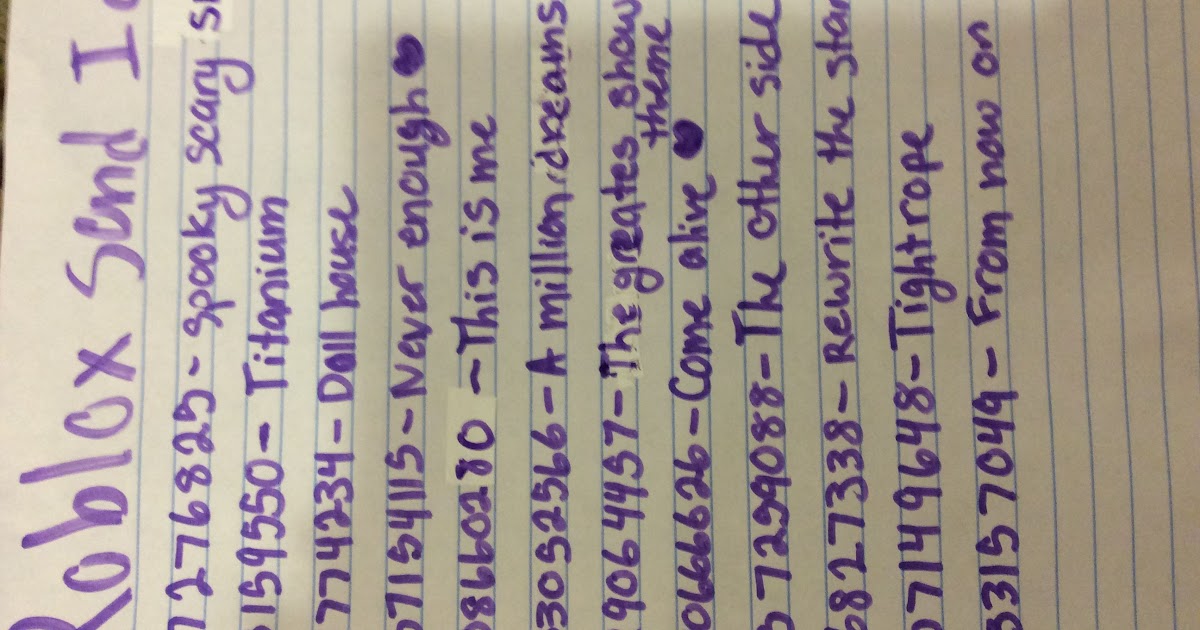 Roblox Send I
7276825-spooky scary s
159550-Titanium
774234-Doll house
07154115-Never enough
08660280-This is me
33052566-A million dreams
90644457-The greates show
theme
0666626-Come alive
57259088-The other side
6827338-Rewrite the star
07149648-Tightrope
33157049-From now on